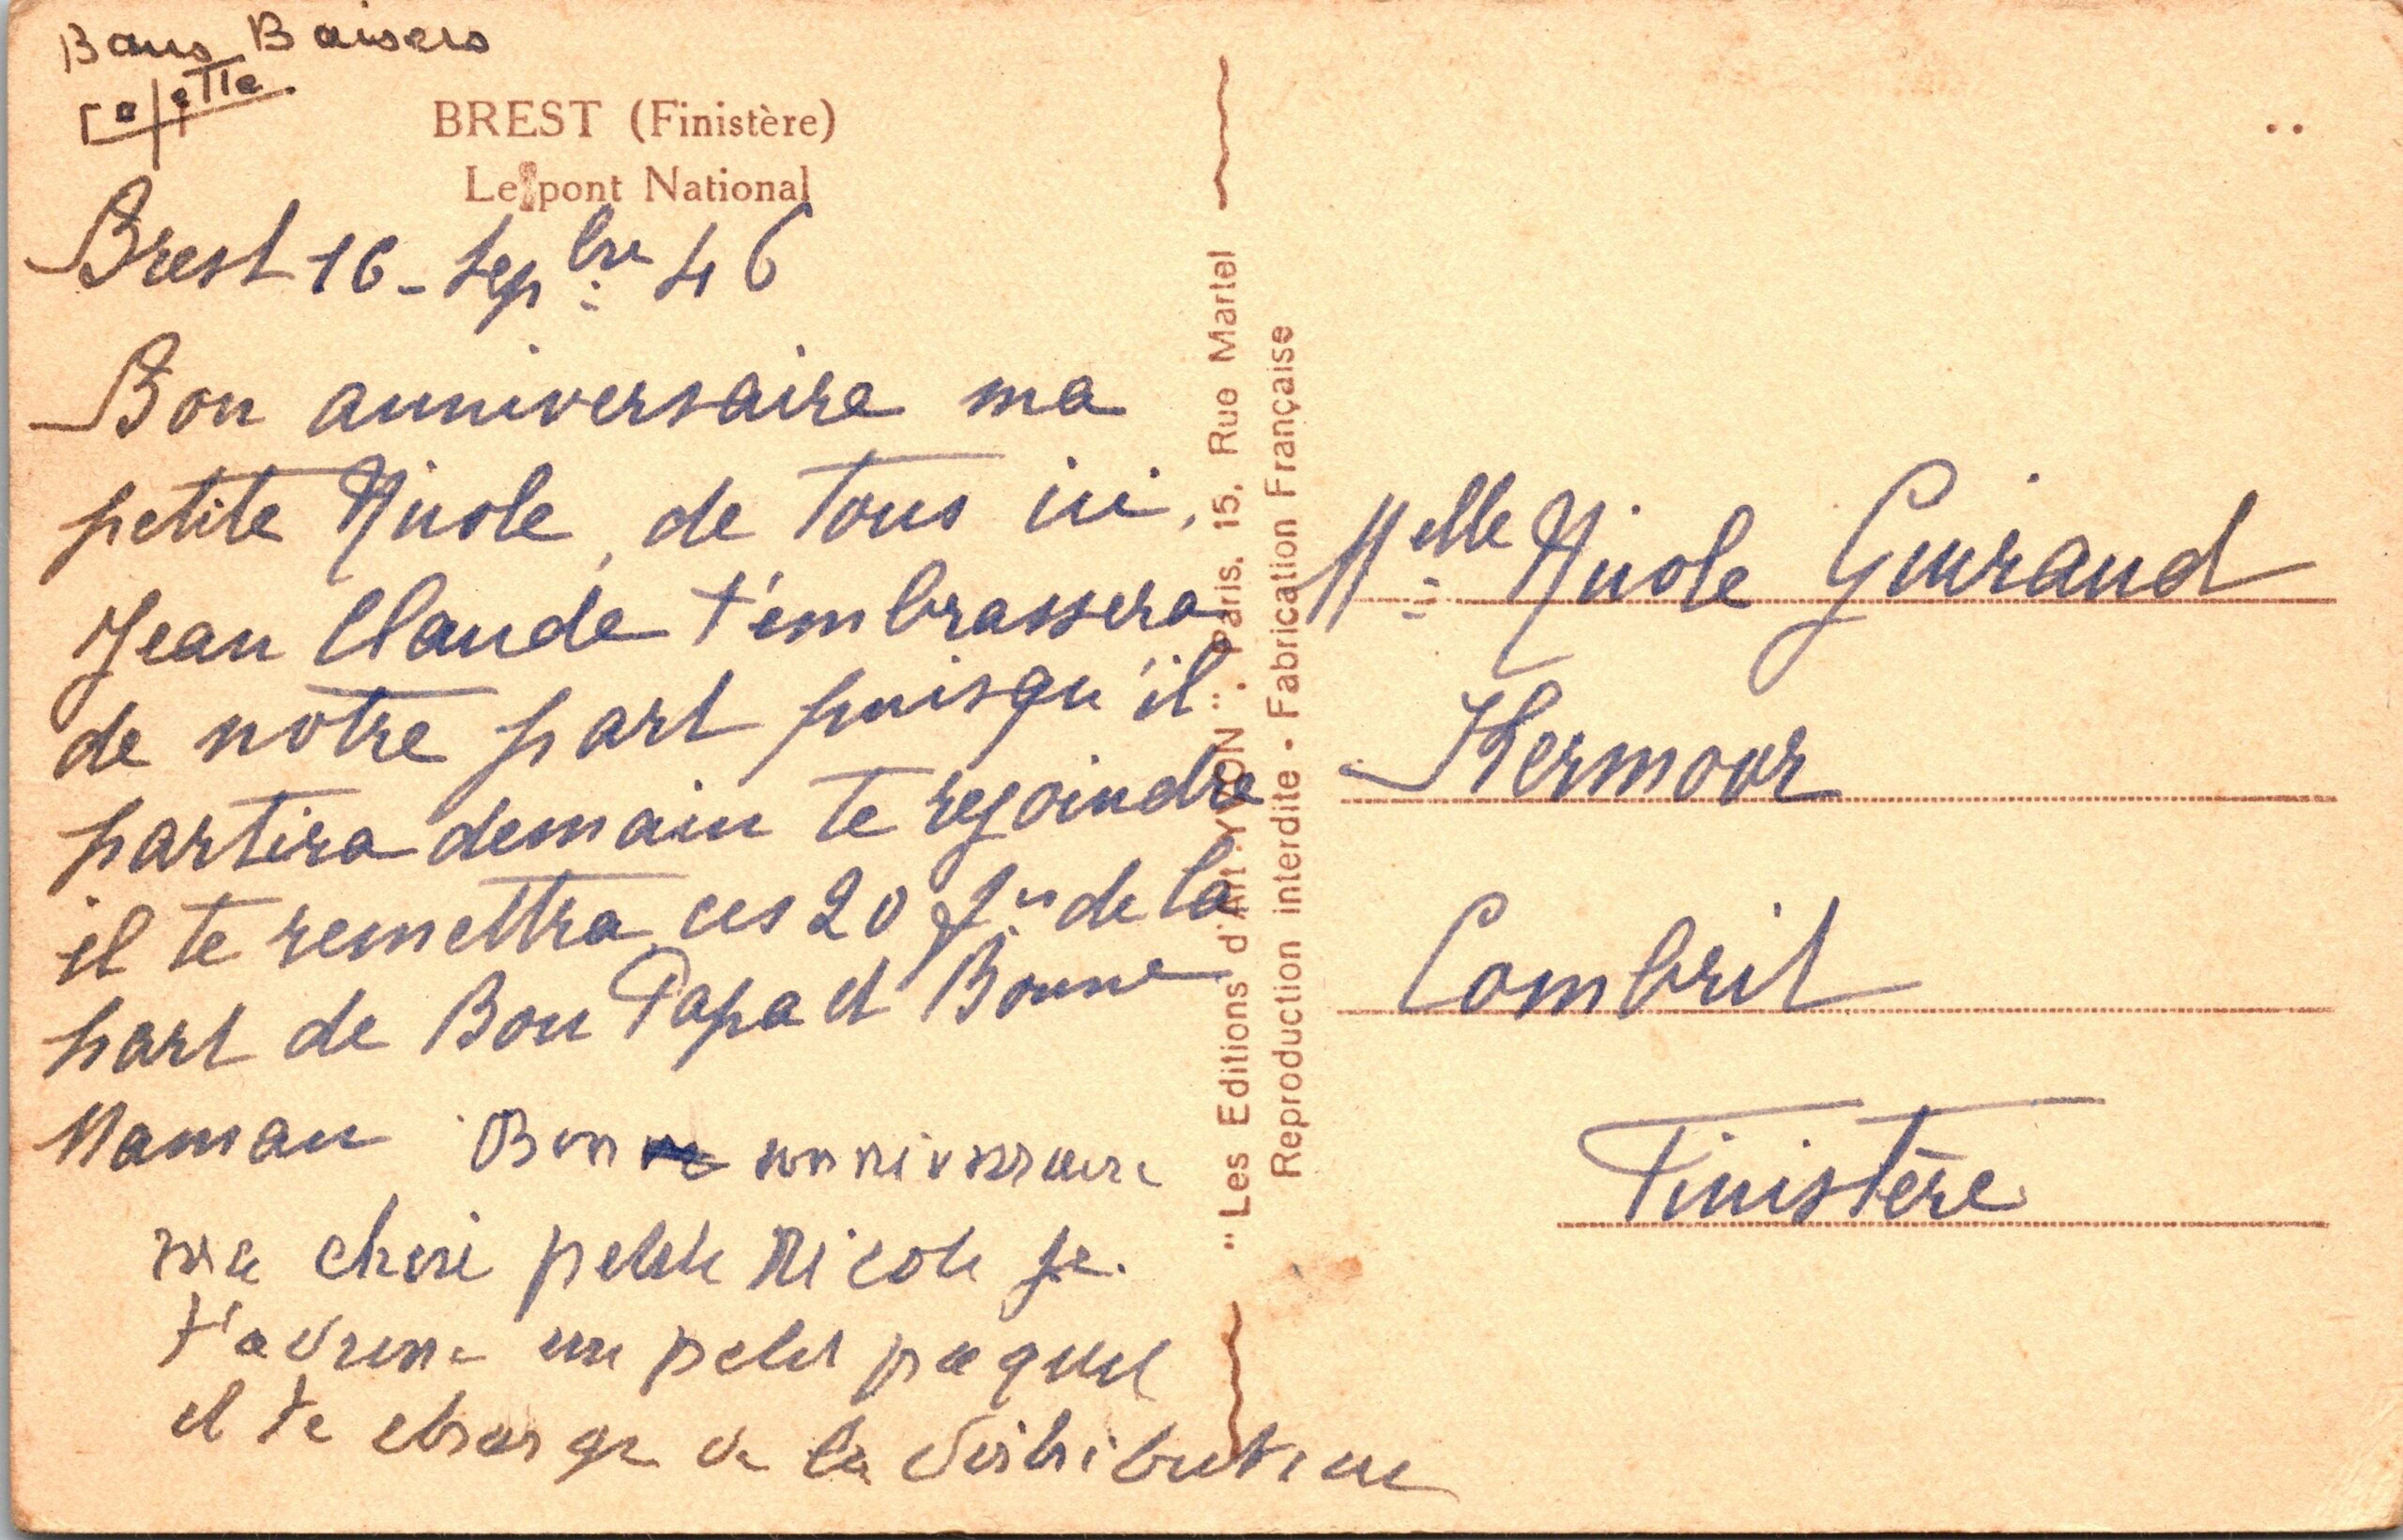 Bons Baisers
BREST (Finistère)
Le pont National
Brest 16 - Sepbre 46
Bon anniversaire ma
petite Nicole, de tous ici,
Jean Claude t'embrassera
de notre part puisqu'il
partira demain te rejoindre
il te remettra ces 20 frs de la
part de Bon Papa et Bonne
Maman
Bon anniversaire
ma cheri petite Nicole je
t'adresse un petit paquet
et te charge de la distribution
"Les Editions d'Art YVON". Paris. 15, Rue Martel
Reproduction interdite - Fabrication Française
Melle Nicole Guiraud
Kermoor
Combrit
Finistère